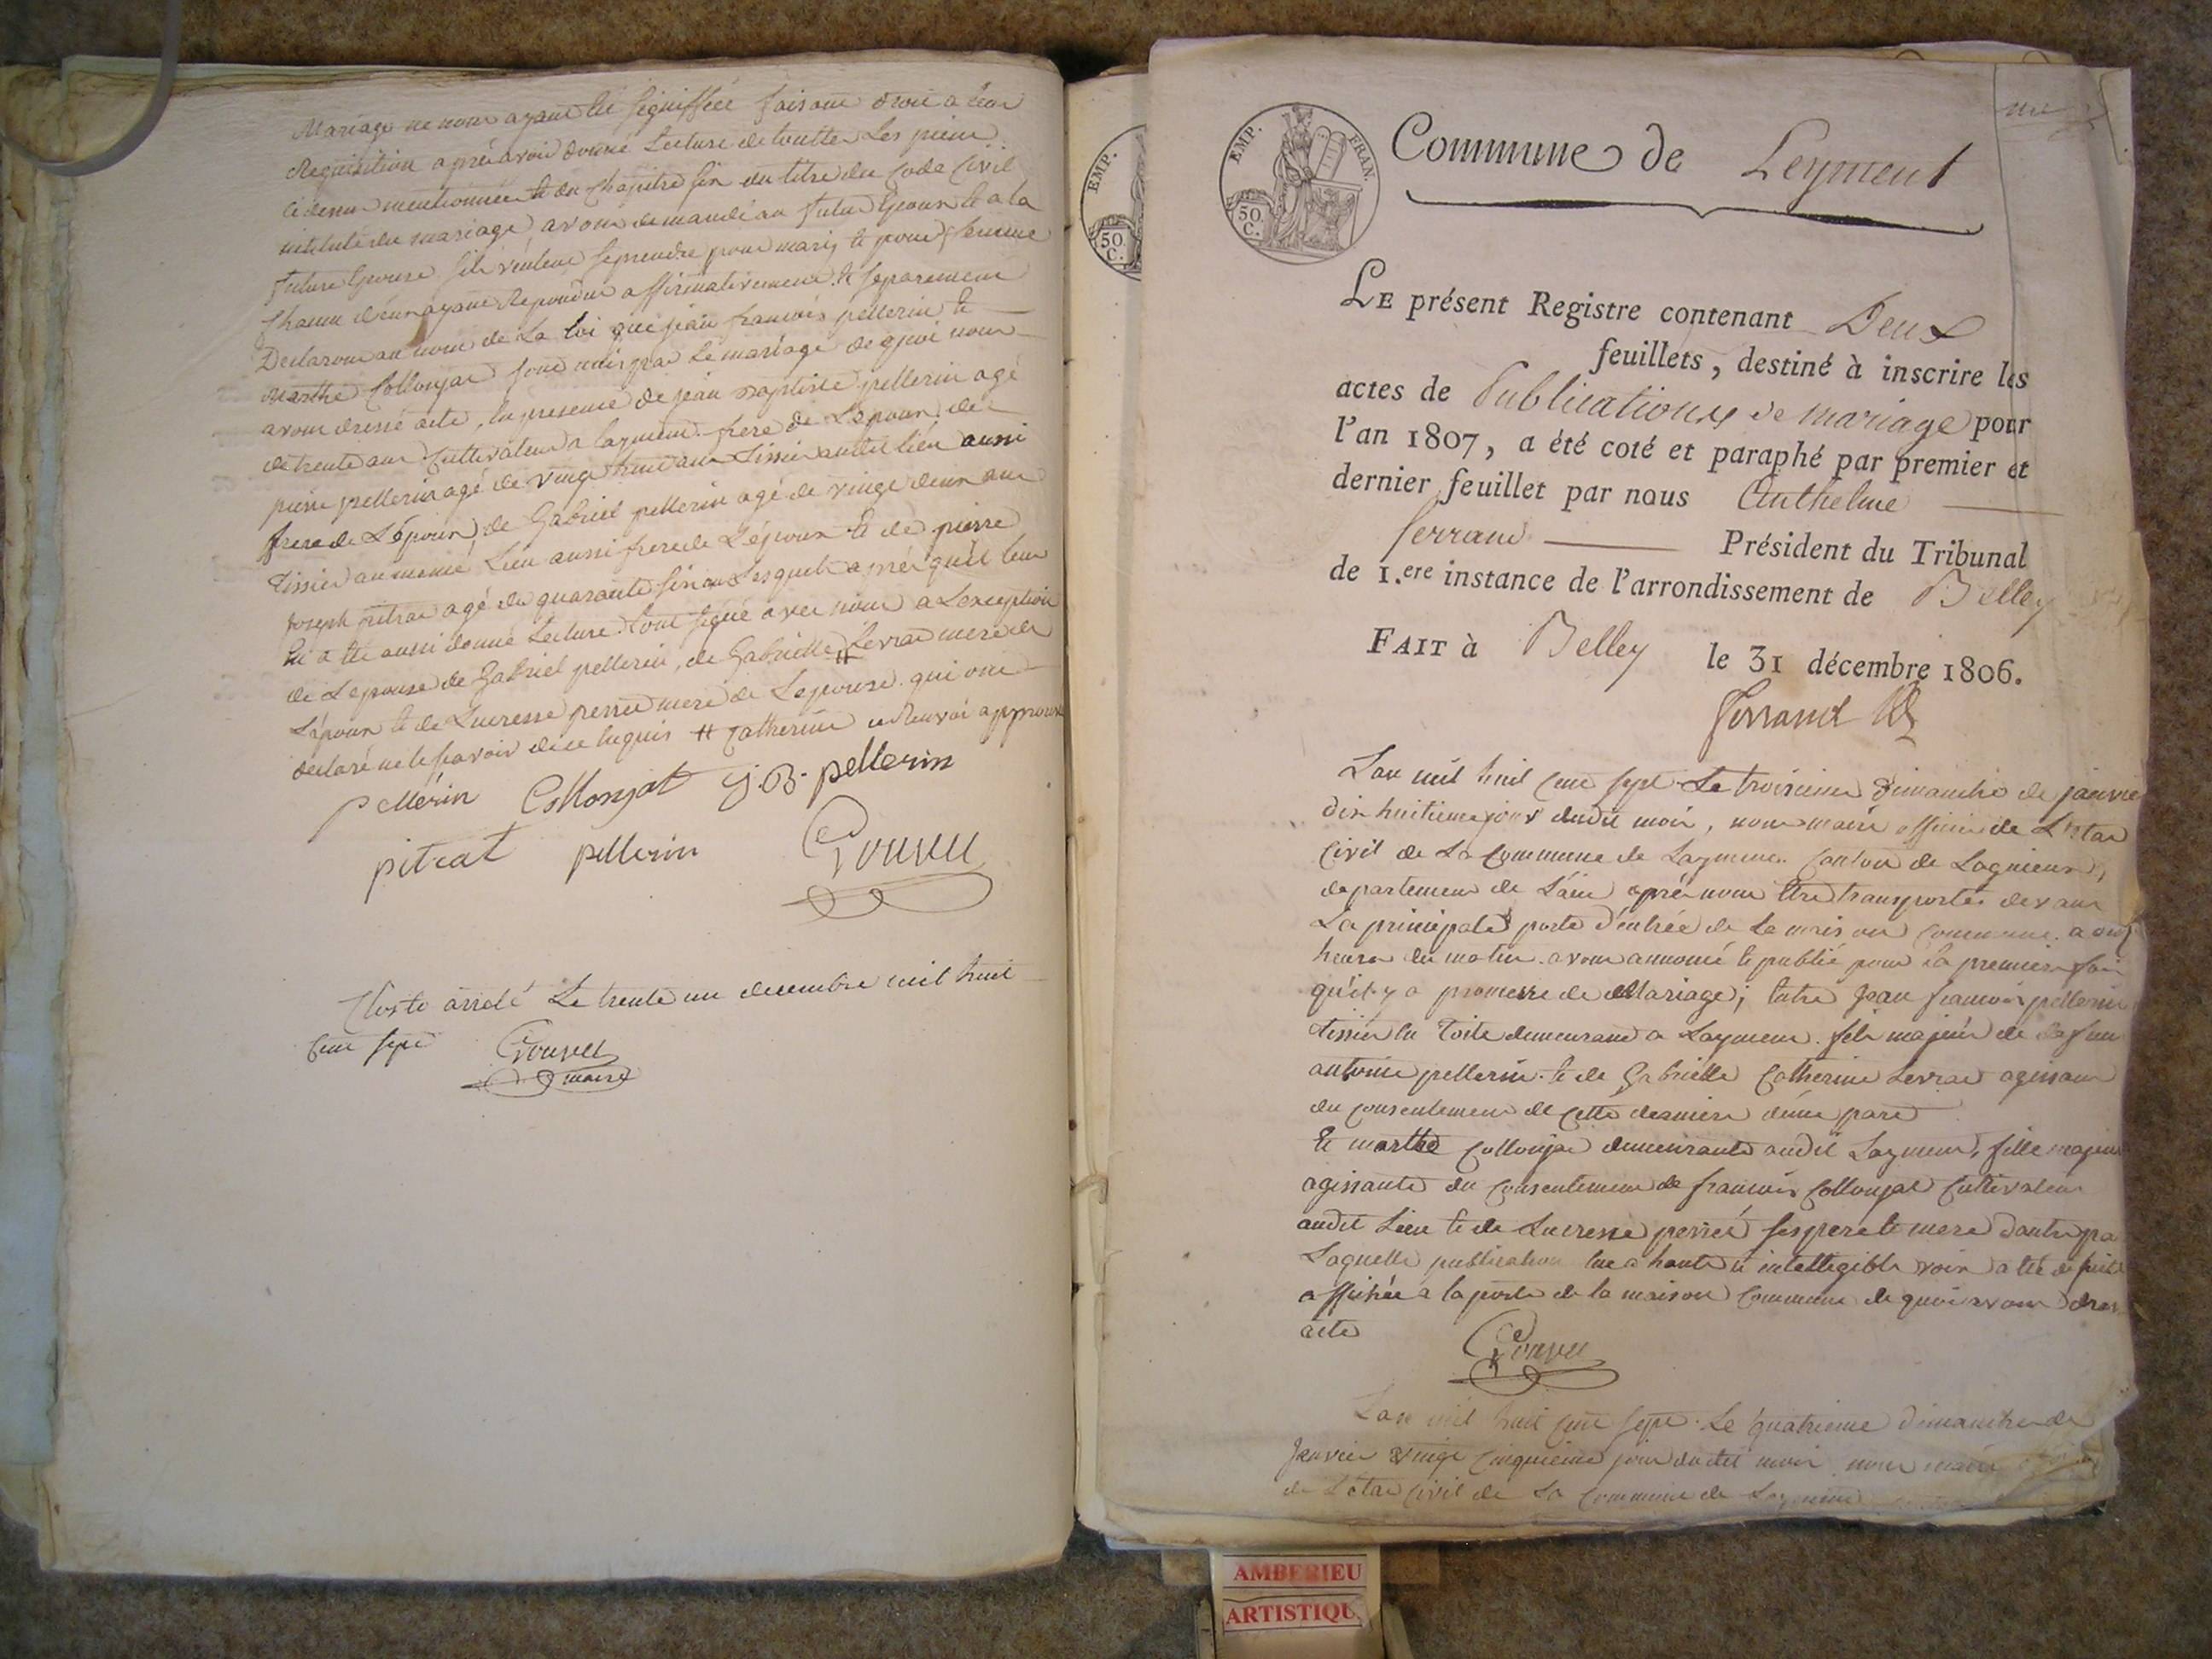 Mariage ne nous ayant été signiffée faisant droit a leur
Requisition aprés avoir donné Lecture de toutte Les pieces
ci dessus mentionnée et du Chapitre six du titre du Code Civil
intitulé du mariage avons demandé au futur Epoux et a la
future Epouse s'ils veulent se prendre pour mary et pour femme
chacun d'eux ayant Repondu affirmativement et separement
Declarons au nom de La loi que jean francois pellerin et
Marthe Collonjat sont unis par Le mariage de quoi nous
avons dressé acte, en presence de jean Baptiste pellerin agé
de trente ans Cultivateur a Layment frere de L'epoux de
pierre pellerin agé de vingt huit ans Tissier audit lieu aussi
frere de L'époux, de Gabriel pellerin agé de vingt deux ans
Tissier au meme Lieu aussi frere de L'époux et de pierre
joseph pitrat agé de quarante six ans Lesquels aprés qu'il leur
en a été aussi donné Lecture tout signé avec nous a L'exception
de L'epouse de Gabriel pellerin, de Gabrielle # Levrat mere de
L'époux et de Lucresse perret mere de L'epouse qui ont
declaré ne le scavoir de ce Enquis # Catherine ce Renvoi approuvé
pellérin Collonjat J. B. pellerin
pitrat pellerin Gouvu
Clos et arreté Le trente un decembre mil huit
Cent sept Gouvu
maire
EMP. 50. C.
EMP. FRAN. 50. C.
Commune de Leyment
LE présent Registre contenant Deux
feuillets, destiné à inscrire les
actes de Publications de mariage pour
l'an 1807, a été coté et paraphé par premier et
dernier feuillet par nous Anthelme
ferrand Président du Tribunal
de 1.ere instance de l'arrondissement de Belley
FAIT à Belley le 31 décembre 1806.
ferrand
L'an mil huit Cent sept Le troisieme Dimanche de janvier
dix huitieme jour dudit mois, nous maire officier de L'Etat
Civil de La Commune de Layment Canton de Lagnieux,
departement de L'ain aprés nous être transporté devant
La principale porte d'entrée de la maison Commune a onze
heures du matin avons annoncé et publié pour la premiere fois
qu'il y a promesse de Mariage; Entre Jean francois pellerin
Tissier en Toile demeurant a Layment fils majeur de defunt
antoine pellerin et de Gabrielle Catherine Levrat agissant
du consentement de Cette derniere d'une part
Et marthe Collonjat demeurante audit Layment, fille majeure
agissante du Consentement de francois Collonjat Cultivateur
audit Lieu et de Lucresse perret ses pere et mere d'autre pa
Laquelle publication lue a haute et intelligible voix a été de suite
affichée a la porte de la maison Commune de quoi avons dressé
acte
Gouvu
L'an mil huit Cent sept Le quatrieme Dimanche de
Janvier vingt Cinquieme jour dudit mois nous maire officier
de L'état Civil de La Commune de Layment
AMBERIEU
ARTISTIQU